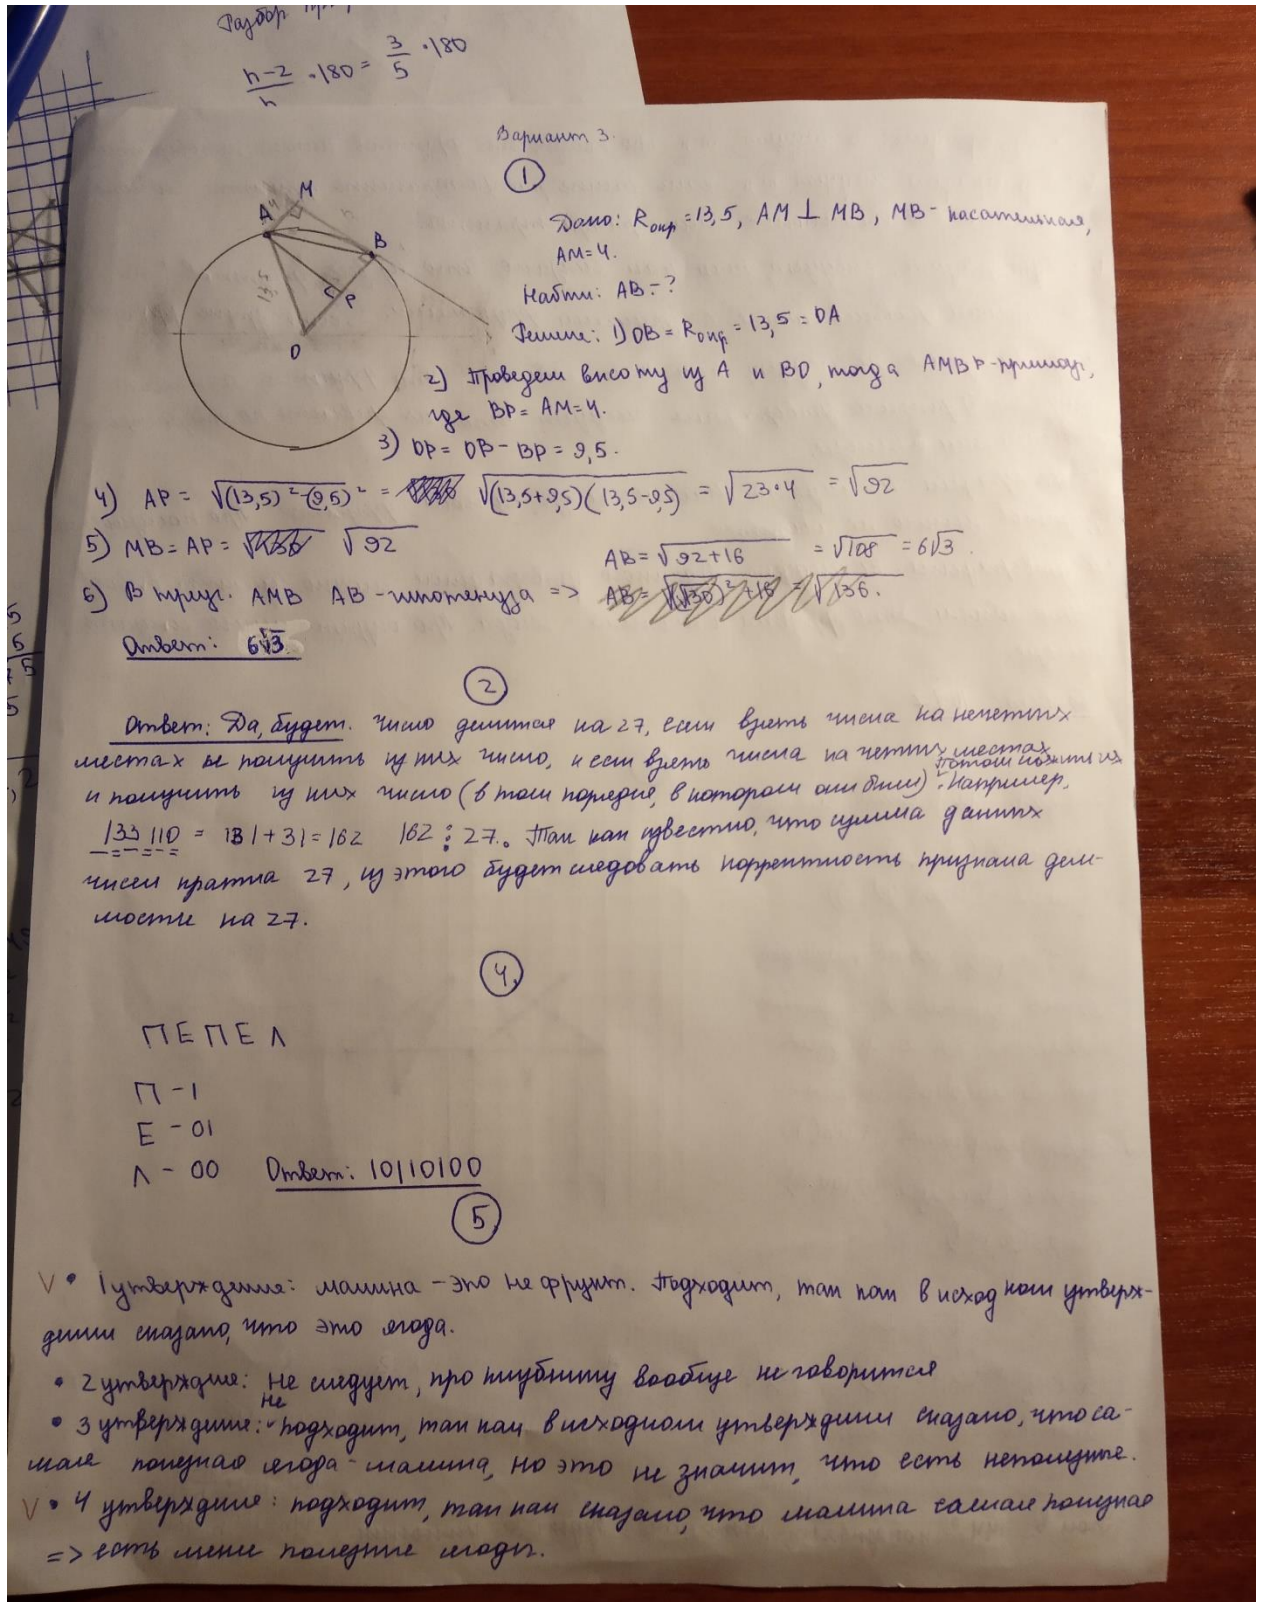 Разбор
n-2/n · 180 = 3/5 · 180
Вариант 3.
1
Дано: Rокр = 13,5, AM ⊥ MB, MB - касательная,
AM = 4.
Найти: AB - ?
Решение: 1) OB = Rокр = 13,5 = OA
2) Проведем высоту из A к BO, тогда AMBP - прямоуг,
где BP = AM = 4.
3) OP = OB - BP = 9,5.
4) AP = √(13,5)² - (9,5)² = √(13,5+9,5)(13,5-9,5) = √23·4 = √92
5) MB = AP = √92
AB = √92+16 = √108 = 6√3.
6) В треуг. AMB AB - гипотенуза =>
Ответ: 6√3
A
4
M
B
13,5
P
O
2
Ответ: Да, будет. Число делится на 27, если взять числа на нечетных
местах и получить из них число, и если взять числа на четных местах
и получить из них число (в том порядке, в котором они были). Потом сложить их
Например,
133110 = 131+31=162 162 ⋮ 27. Так как известно, что сумма данных
чисел кратна 27, из этого будет следовать корректность признака дели-
мости на 27.
4.
ПЕПЕЛ
П - 1
Е - 01
Л - 00 Ответ: 10110100
5
V • 1 утверждение: малина - это не фрукт. Подходит, так как в исходном утверж-
дении сказано, что это ягода.
• 2 утверждние: Не следует, про клубнику вообще не говорится
• 3 утверждение: не подходит, так как в исходном утверждении сказано, что са-
мая полезная ягода - малина, но это не значит, что есть неполезные.
V • 4 утверждение: подходит, так как сказано, что малина самая полезная
=> есть менее полезные ягоды.